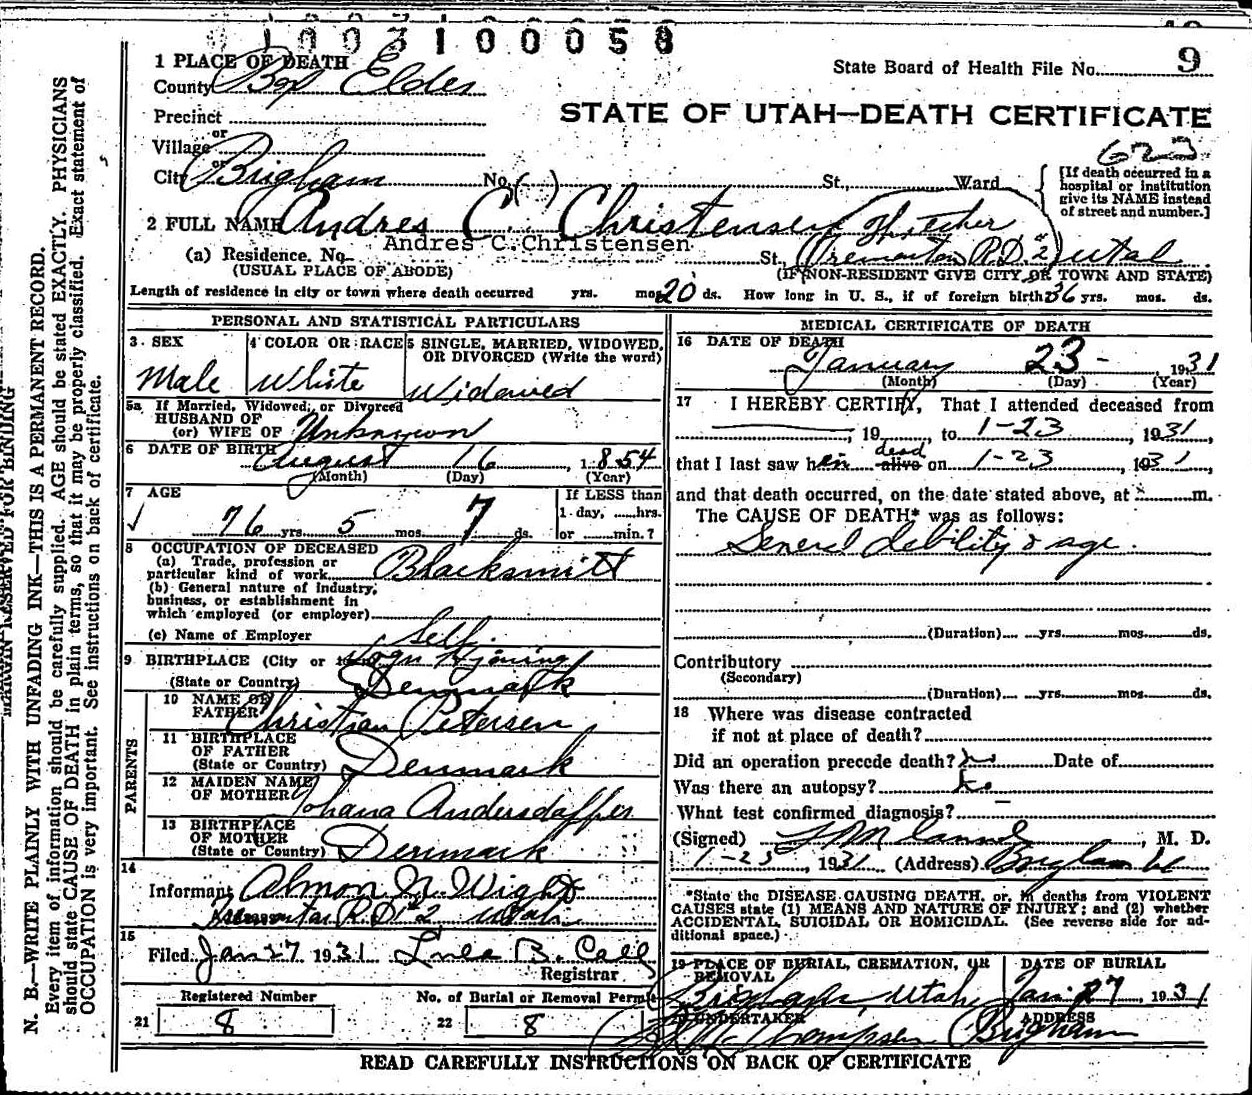 1003100058
1 PLACE OF DEATH
State Board of Health File No. 9
County Box Elder
STATE OF UTAH—DEATH CERTIFICATE
Precinct
or
Village
623
or
City Brigham No. ( ) St., Ward
[If death occurred in a hospital or institution give its NAME instead of street and number.]
2 FULL NAME Andres C. Christensen
Andres C. Christensen
(a) Residence. No. St., Tremonton R.D. #2 Utah
(USUAL PLACE OF ABODE) (IF NON-RESIDENT GIVE CITY OR TOWN AND STATE)
Length of residence in city or town where death occurred yrs. mos. 20 ds. How long in U. S., if of foreign birth? 36 yrs. mos. ds.
PERSONAL AND STATISTICAL PARTICULARS
3 SEX
Male
4 COLOR OR RACE
White
5 SINGLE, MARRIED, WIDOWED, OR DIVORCED (Write the word)
Widowed
5a If Married, Widowed, or Divorced
HUSBAND OF
(or) WIFE OF Unknown
6 DATE OF BIRTH August 16, 1854
(Month) (Day) (Year)
7 AGE
76 yrs. 5 mos. 7 ds.
If LESS than
1 day, ......hrs.
or ......min.?
8 OCCUPATION OF DECEASED
(a) Trade, profession or
particular kind of work Blacksmith
(b) General nature of industry,
business, or establishment in
which employed (or employer)
(c) Name of Employer Self.
9 BIRTHPLACE (City or
(State or Country) Denmark
PARENTS
10 NAME OF
FATHER Christian Petersen
11 BIRTHPLACE
OF FATHER
(State or Country) Denmark
12 MAIDEN NAME
OF MOTHER Johana
13 BIRTHPLACE
OF MOTHER
(State or Country) Denmark
14
Informant Almon N. Wight
Tremonton R.D. #2 Utah
15
Filed Jan 27 1931 B. Call
Registrar
Registered Number
21 8
No. of Burial or Removal Permit
22 8
MEDICAL CERTIFICATE OF DEATH
16 DATE OF DEATH
January 23 - , 1931
(Month) (Day) (Year)
17 I HEREBY CERTIFY, That I attended deceased from
, 19 , to 1-23, 1931,
dead
that I last saw him alive on 1-23, 1931,
and that death occurred, on the date stated above, at m.
The CAUSE OF DEATH* was as follows:
General debility & age.
(Duration) yrs. mos. ds.
Contributory
(Secondary)
(Duration) yrs. mos. ds.
18 Where was disease contracted
if not at place of death?
Did an operation precede death? No Date of
Was there an autopsy? No
What test confirmed diagnosis?
(Signed) , M. D.
1-23, 1931 (Address) Brigham Ut
*State the DISEASE CAUSING DEATH, or, in deaths from VIOLENT CAUSES state (1) MEANS AND NATURE OF INJURY; and (2) whether ACCIDENTAL, SUICIDAL OR HOMICIDAL. (See reverse side for additional space.)
19 PLACE OF BURIAL, CREMATION, OR REMOVAL
Brigham, Utah
DATE OF BURIAL
Jan. 27, 1931
UNDERTAKER
Thompson
ADDRESS
Brigham
READ CAREFULLY INSTRUCTIONS ON BACK OF CERTIFICATE
MARGIN RESERVED FOR BINDING
N. B.—WRITE PLAINLY WITH UNFADING INK—THIS IS A PERMANENT RECORD.
Every item of information should be carefully supplied. AGE should be stated EXACTLY. PHYSICIANS
should state CAUSE OF DEATH in plain terms, so that it may be properly classified. Exact statement of
OCCUPATION is very important. See instructions on back of certificate.